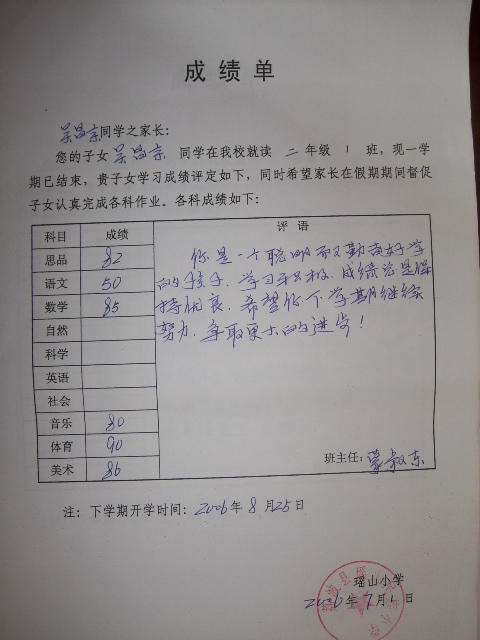 成绩单
吴昌宗同学之家长:
您的子女 吴昌宗 同学在我校就读 二 年级 1 班,现一学
期已结束,贵子女学习成绩评定如下,同时希望家长在假期期间督促
子女认真完成各科作业。各科成绩如下:
科目 成绩 评语
思品 82
语文 50
数学 85
自然
科学
英语
社会
音乐 80
体育 90
美术 86
你是一个聪明而又勤奋好学
的孩子,学习积极,成绩总是保
持优良,希望你下学期继续
努力,争取更大的进步!
班主任:蒙叔东
注:下学期开学时间:2006年 8 月25日
瑶山小学
2006年7月1日